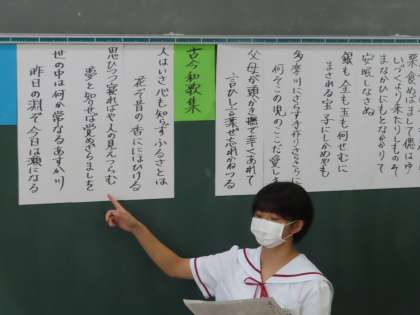 栗食めばまして偲はゆ
いづくより来たりしものそ
まなかひにもとなかかりて
安眠しなさぬ
銀も金も玉も何せむに
まされる宝子にしかめやも
多摩川にさらす手作りさらさらに
何そこの児のここだ愛しき
父母が頭かき撫で幸くあれて
言ひし言葉ぜ忘れかねつる
古今和歌集
人はいさ心も知らずふるさとは
花ぞ昔の香ににほひける
思ひつつ寝ればや人の見えつらむ
夢と知りせば覚めざらましを
世の中は何か常なるあすか川
昨日の淵ぞ今日は瀬になる